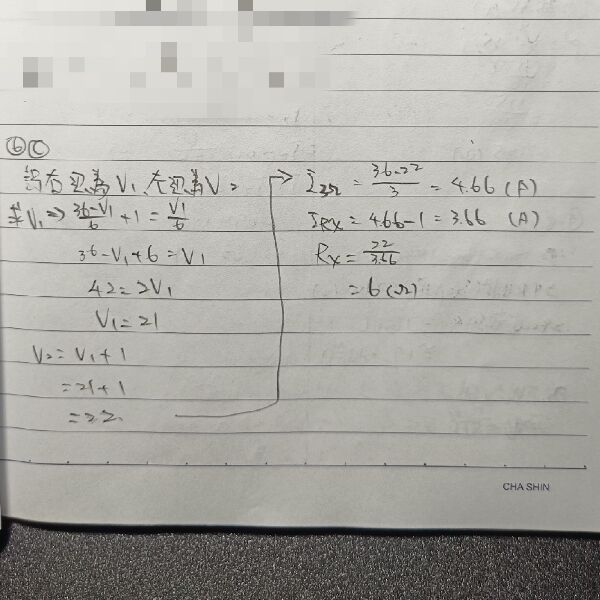 6 C
設右迴為V1、左迴為V2
求V1⇒ (36-V1)/6 + 1 = V1/6
36-V1+6=V1
42=2V1
V1=21
V2=V1+1
=21+1
=22
→ I3Ω = (36-22)/3 = 4.66 (A)
IRx = 4.66-1 = 3.66 (A)
Rx = 22/3.66
= 6 (Ω)
CHA SHIN